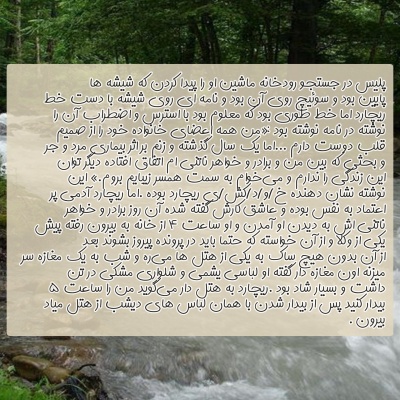 پلیس در جستجو رودخانه ماشین او را پیدا کردن که شیشه ها
پایین بود و سوئیچ روی آن بود و نامه ای روی شیشه با دست خط
ریچارد اما خط طوری بود که معلوم بود با استرس و اضطراب آن را
نوشته در نامه نوشته بود :«من همه اعضای خانواده خود را از صمیم
قلب دوست دارم ...اما یک سال گذشته و زنم بر اثر بیماری مرد و جر
و بحثی که بین من و برادر و خواهر ناتنی ام اتفاق افتاده دیگر توان
این زندگی را ندارم و می‌خوام به سمت همسر زیبایم بروم.» این
نوشته نشان دهنده خ/و/د/کش/ی ریچارد بوده .اما ریچارد آدمی پر
اعتماد به نفس بوده و عاشق کارش گفته شده آن روز برادر و خواهر
ناتنی اش به دیدن او آمدن و او ساعت ۴ از خانه به بیرون رفته پیش
یکی از وکلا و از آن خواسته که حتما باید در پرونده پیروز بشوند بعد
از آن بدون هیچ ساک به یکی از هتل ها می‌ره و شب به یک مغازه سر
میزنه اون مغازه دار گفته او لباسی یشمی و شلواری مشکی در تن
داشت و بسیار شاد بود .ریچارد به هتل دار می‌گوید من را ساعت ۵
بیدار کنید پس از بیدار شدن با همان لباس های دیشب از هتل میاد
بیرون .